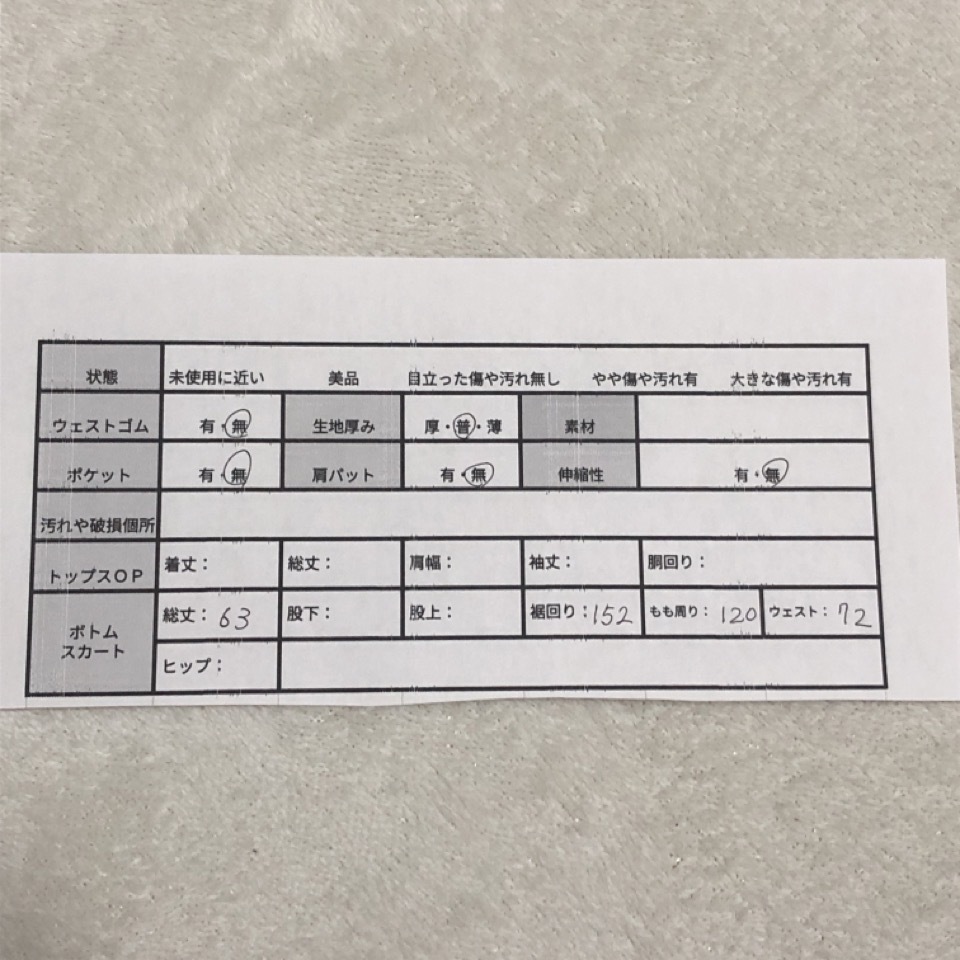 状態 未使用に近い 美品 目立った傷や汚れ無し やや傷や汚れ有 大きな傷や汚れ有
ウェストゴム 有・無 生地厚み 厚・普・薄 素材
ポケット 有・無 肩パット 有・無 伸縮性 有・無
汚れや破損個所
トップスOP 着丈： 総丈： 肩幅： 袖丈： 胴回り：
ボトム
スカート 総丈：63 股下： 股上： 裾回り：152 もも周り：120 ウェスト：72
ヒップ：